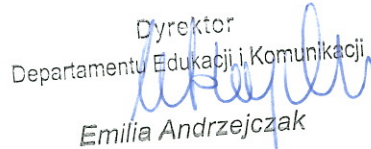 Dyrektor
Departamentu Edukacji i Komunikacji
Emilia Andrzejczak